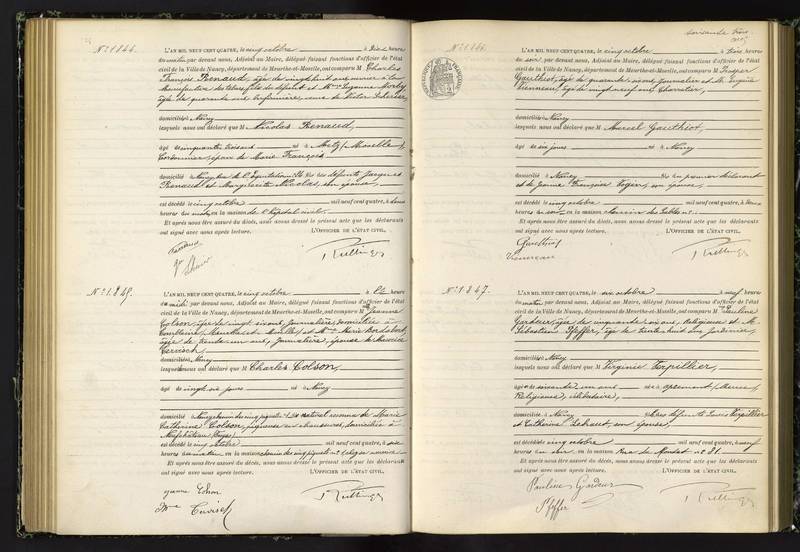 N° 1844.
L'AN MIL NEUF CENT QUATRE, le cinq octobre à dix heures
du matin, par devant nous, Adjoint au Maire, délégué faisant fonctions d'officier de l'état
civil de la Ville de Nancy, département de Meurthe-et-Moselle, ont comparu M Charles
François Renaud, âgé de vingt huit ans, ouvrier à la
Manufacture des tabacs, fils du défunt et Mme Suzanne
âgée de quarante ans, infirmière, veuve de Victor
domiciliés à Nancy
lesquels nous ont déclaré que M Nicolas Renaud,
âgé de cinquante trois ans né à Metz (Moselle)
Cordonnier, époux de Marie François
domicilié à Nancy rue de l'Equitation 26 fils des défunts Jacques
Renaud et Marguerite Nicolas, son épouse,
est décédé le cinq octobre mil neuf cent quatre, à deux
heures du matin, en la maison de l'hôpital civil.
Et après nous être assuré du décès, nous avons dressé le présent acte que les déclarants
ont signé avec nous après lecture. L'OFFICIER DE L'ÉTAT CIVIL,
Renaud
N° 1845.
L'AN MIL NEUF CENT QUATRE, le cinq octobre à heures
du midi, par devant nous, Adjoint au Maire, délégué faisant fonctions d'officier de l'état
civil de la Ville de Nancy, département de Meurthe-et-Moselle, ont comparu M Jeanne
Colson, âgée de vingt six ans, journalière, domiciliée à
Meurthe et Moselle, et Mme Marie
âgée de trente un ans, journalière, épouse de Maurice
domiciliés à Nancy
lesquels nous ont déclaré que M Charles Colson,
âgé de vingt six jours né à Nancy
domicilié à Nancy chemin des cinq piquets n° fils naturel reconnu de Marie
Catherine Colson, piqueuse en chaussures, domiciliée à
Neufchâteau (Vosges)
est décédé le cinq octobre mil neuf cent quatre, à six
heures du matin, en la maison chemin des cinq piquets n°
Et après nous être assuré du décès, nous avons dressé le présent acte que les déclarants
ont signé avec nous après lecture. L'OFFICIER DE L'ÉTAT CIVIL,
Jeanne Colson
Mme
soixante trois
N° 1846.
L'AN MIL NEUF CENT QUATRE, le cinq octobre à trois heures
du soir, par devant nous, Adjoint au Maire, délégué faisant fonctions d'officier de l'état
civil de la Ville de Nancy, département de Meurthe-et-Moselle, ont comparu M Prosper
Gauthiot, âgé de quarante six ans, journalier et M. Eugène
âgé de vingt neuf ans, charretier,
domiciliés à Nancy
lesquels nous ont déclaré que M Marcel Gauthiot,
âgé de six jours né à Nancy
domicilié à Nancy fils du premier déclarant
et de Jeanne Françoise son épouse,
est décédé le cinq octobre mil neuf cent quatre, à deux
heures du soir en la maison chemin des Sables n°
Et après nous être assuré du décès, nous avons dressé le présent acte que les déclarants
ont signé avec nous après lecture. L'OFFICIER DE L'ÉTAT CIVIL,
Gauthiot
N° 1847.
L'AN MIL NEUF CENT QUATRE, le six octobre à neuf heures
du matin par devant nous, Adjoint au Maire, délégué faisant fonctions d'officier de l'état
civil de la Ville de Nancy, département de Meurthe-et-Moselle, ont comparu M Pauline
Gardeur, âgée de cinquante six ans, Religieuse et M.
Sébastien Pfeffer, âgé de trente huit ans, jardinier,
domiciliés à Nancy
lesquels nous ont déclaré que M Virginie Varpillier,
âgée de soixante un ans née à Apremont (Meuse)
Religieuse, célibataire,
domiciliée à Nancy fille des défunts Louis Varpillier
et Catherine son épouse,
est décédée le cinq octobre mil neuf cent quatre, à neuf
heures du soir, en la maison rue de Mondésert n° 81
Et après nous être assuré du décès, nous avons dressé le présent acte que les déclarants
ont signé avec nous après lecture. L'OFFICIER DE L'ÉTAT CIVIL,
Pauline Gardeur
Pfeffer